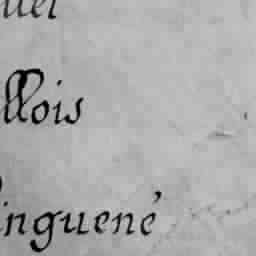 uel
llois
inguené